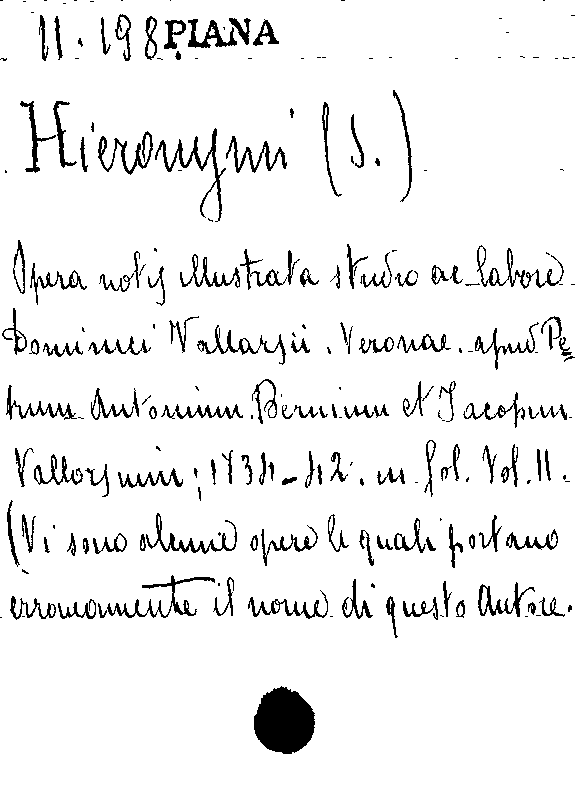 11.198 PIANA
Hieronymi (S.)
Opera notis illustrata studio ac labore
Dominici Vallarsii. Veronae. apud Pe=
trum Antonium Bernium et Jacopum
Vallarsium; 1734-42. in fol. Vol. 11.
(Vi sono alcune opere le quali portano
erroneamente il nome di questo Autore.